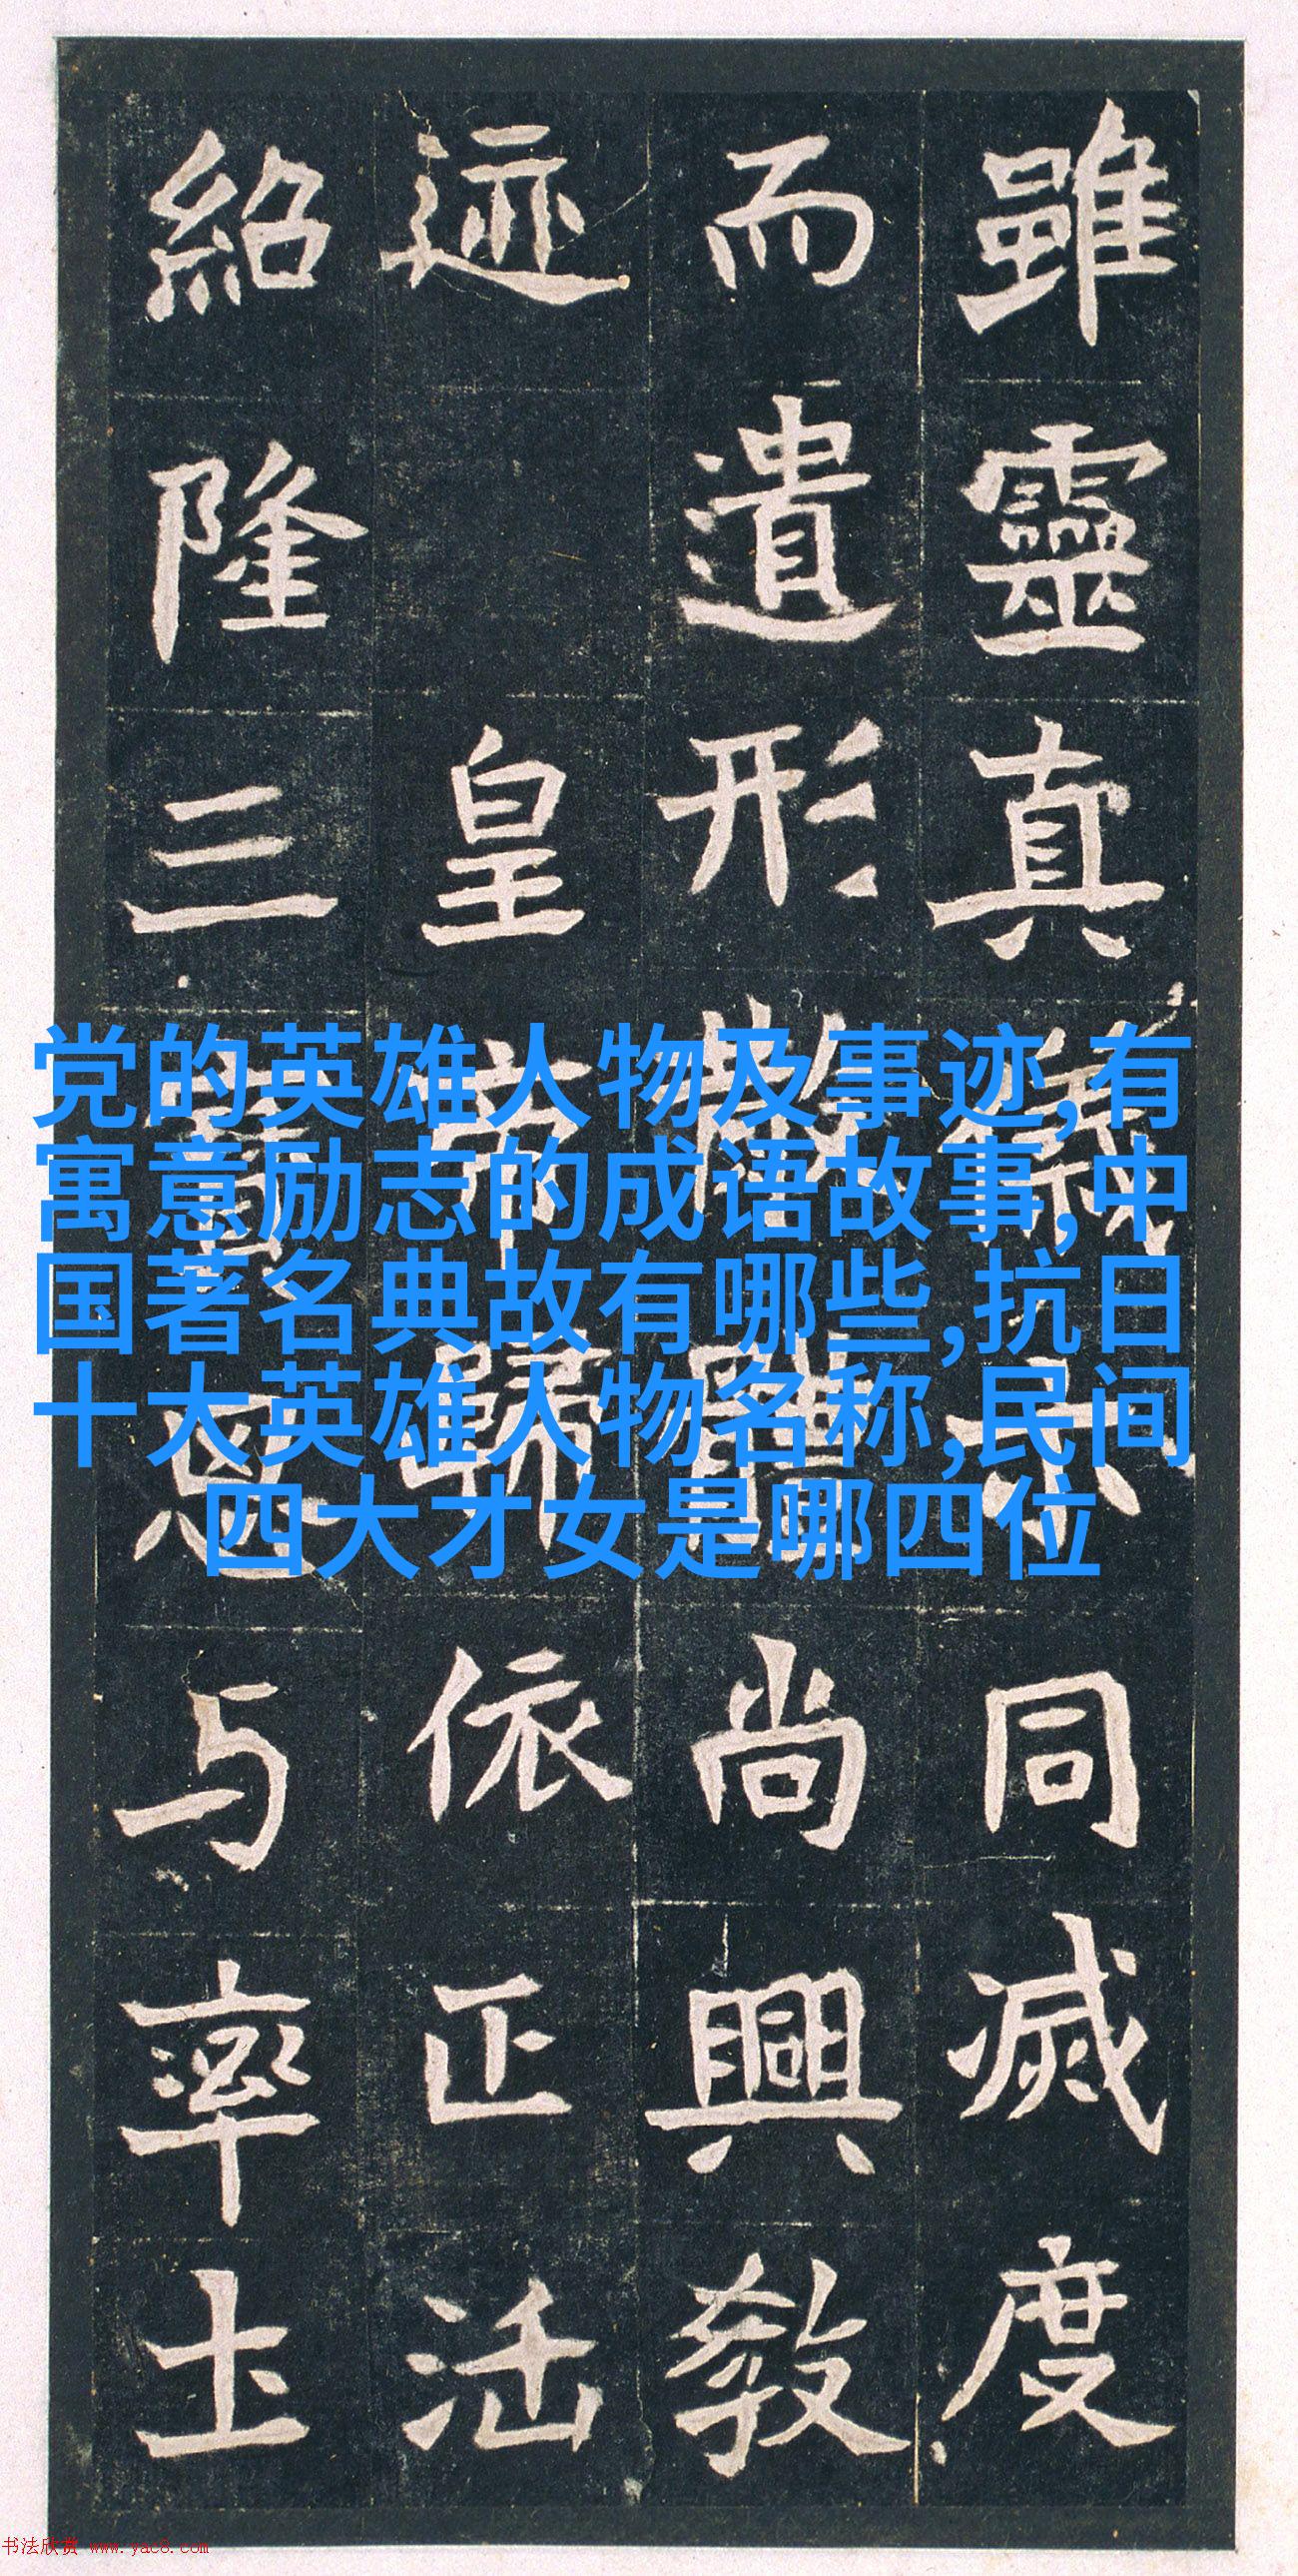 雖靈真同滅度
而遺形散體尚興教
迹 皇帝歸依正法
紹隆三思与率土
党的英雄人物及事迹,有
寓意励志的成语故事,中
国著名典故有哪些,抗日
十大英雄人物名称,民间
四大才女是哪四位
书法欣赏 www.yac8.com